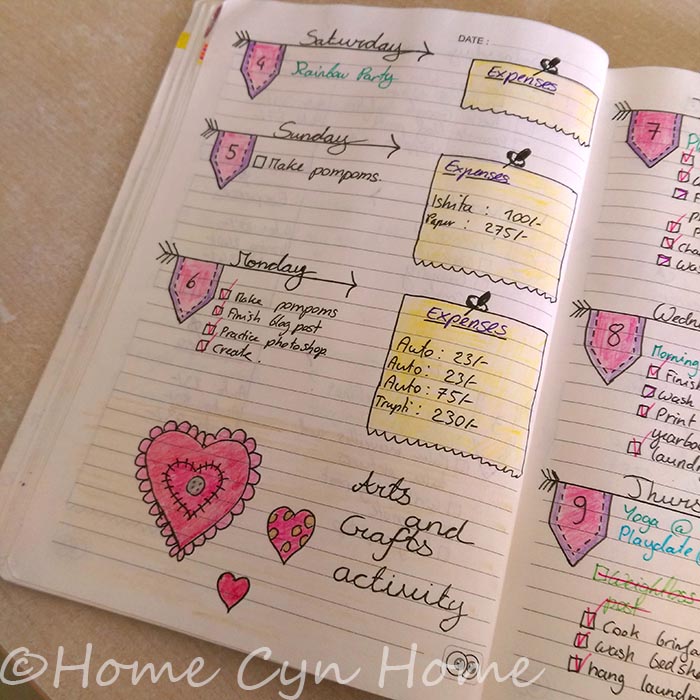 DATE :
Saturday
4
Rainbow Party
Expenses
Sunday
5
Make pompoms.
Expenses
Ishita : 100/-
Paper : 275/-
Monday
6
Make pompoms
Finish blog post
Practice photoshop
Create.
Expenses
Auto : 23/-
Auto : 23/-
Auto : 75/-
Trupti : 230/-
Arts
and
Crafts
activity
7
8
Morning
Finish
Wash
Print
9
Thurs
Yoga @
Playdate
post
Cook
Wash beds
hang laund
©Home Cyn Home